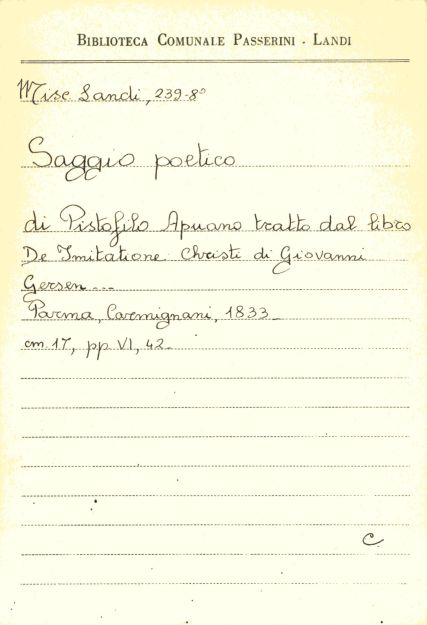 BIBLIOTECA COMUNALE PASSERINI - LANDI
Misc Landi, 239-8°
Saggio poetico
di Pistofilo Apuano tratto dal libro
De Imitatione Christi di Giovanni
Gersen ...
Parma, Carmignani, 1833_
cm. 17, pp VI, 42_
C